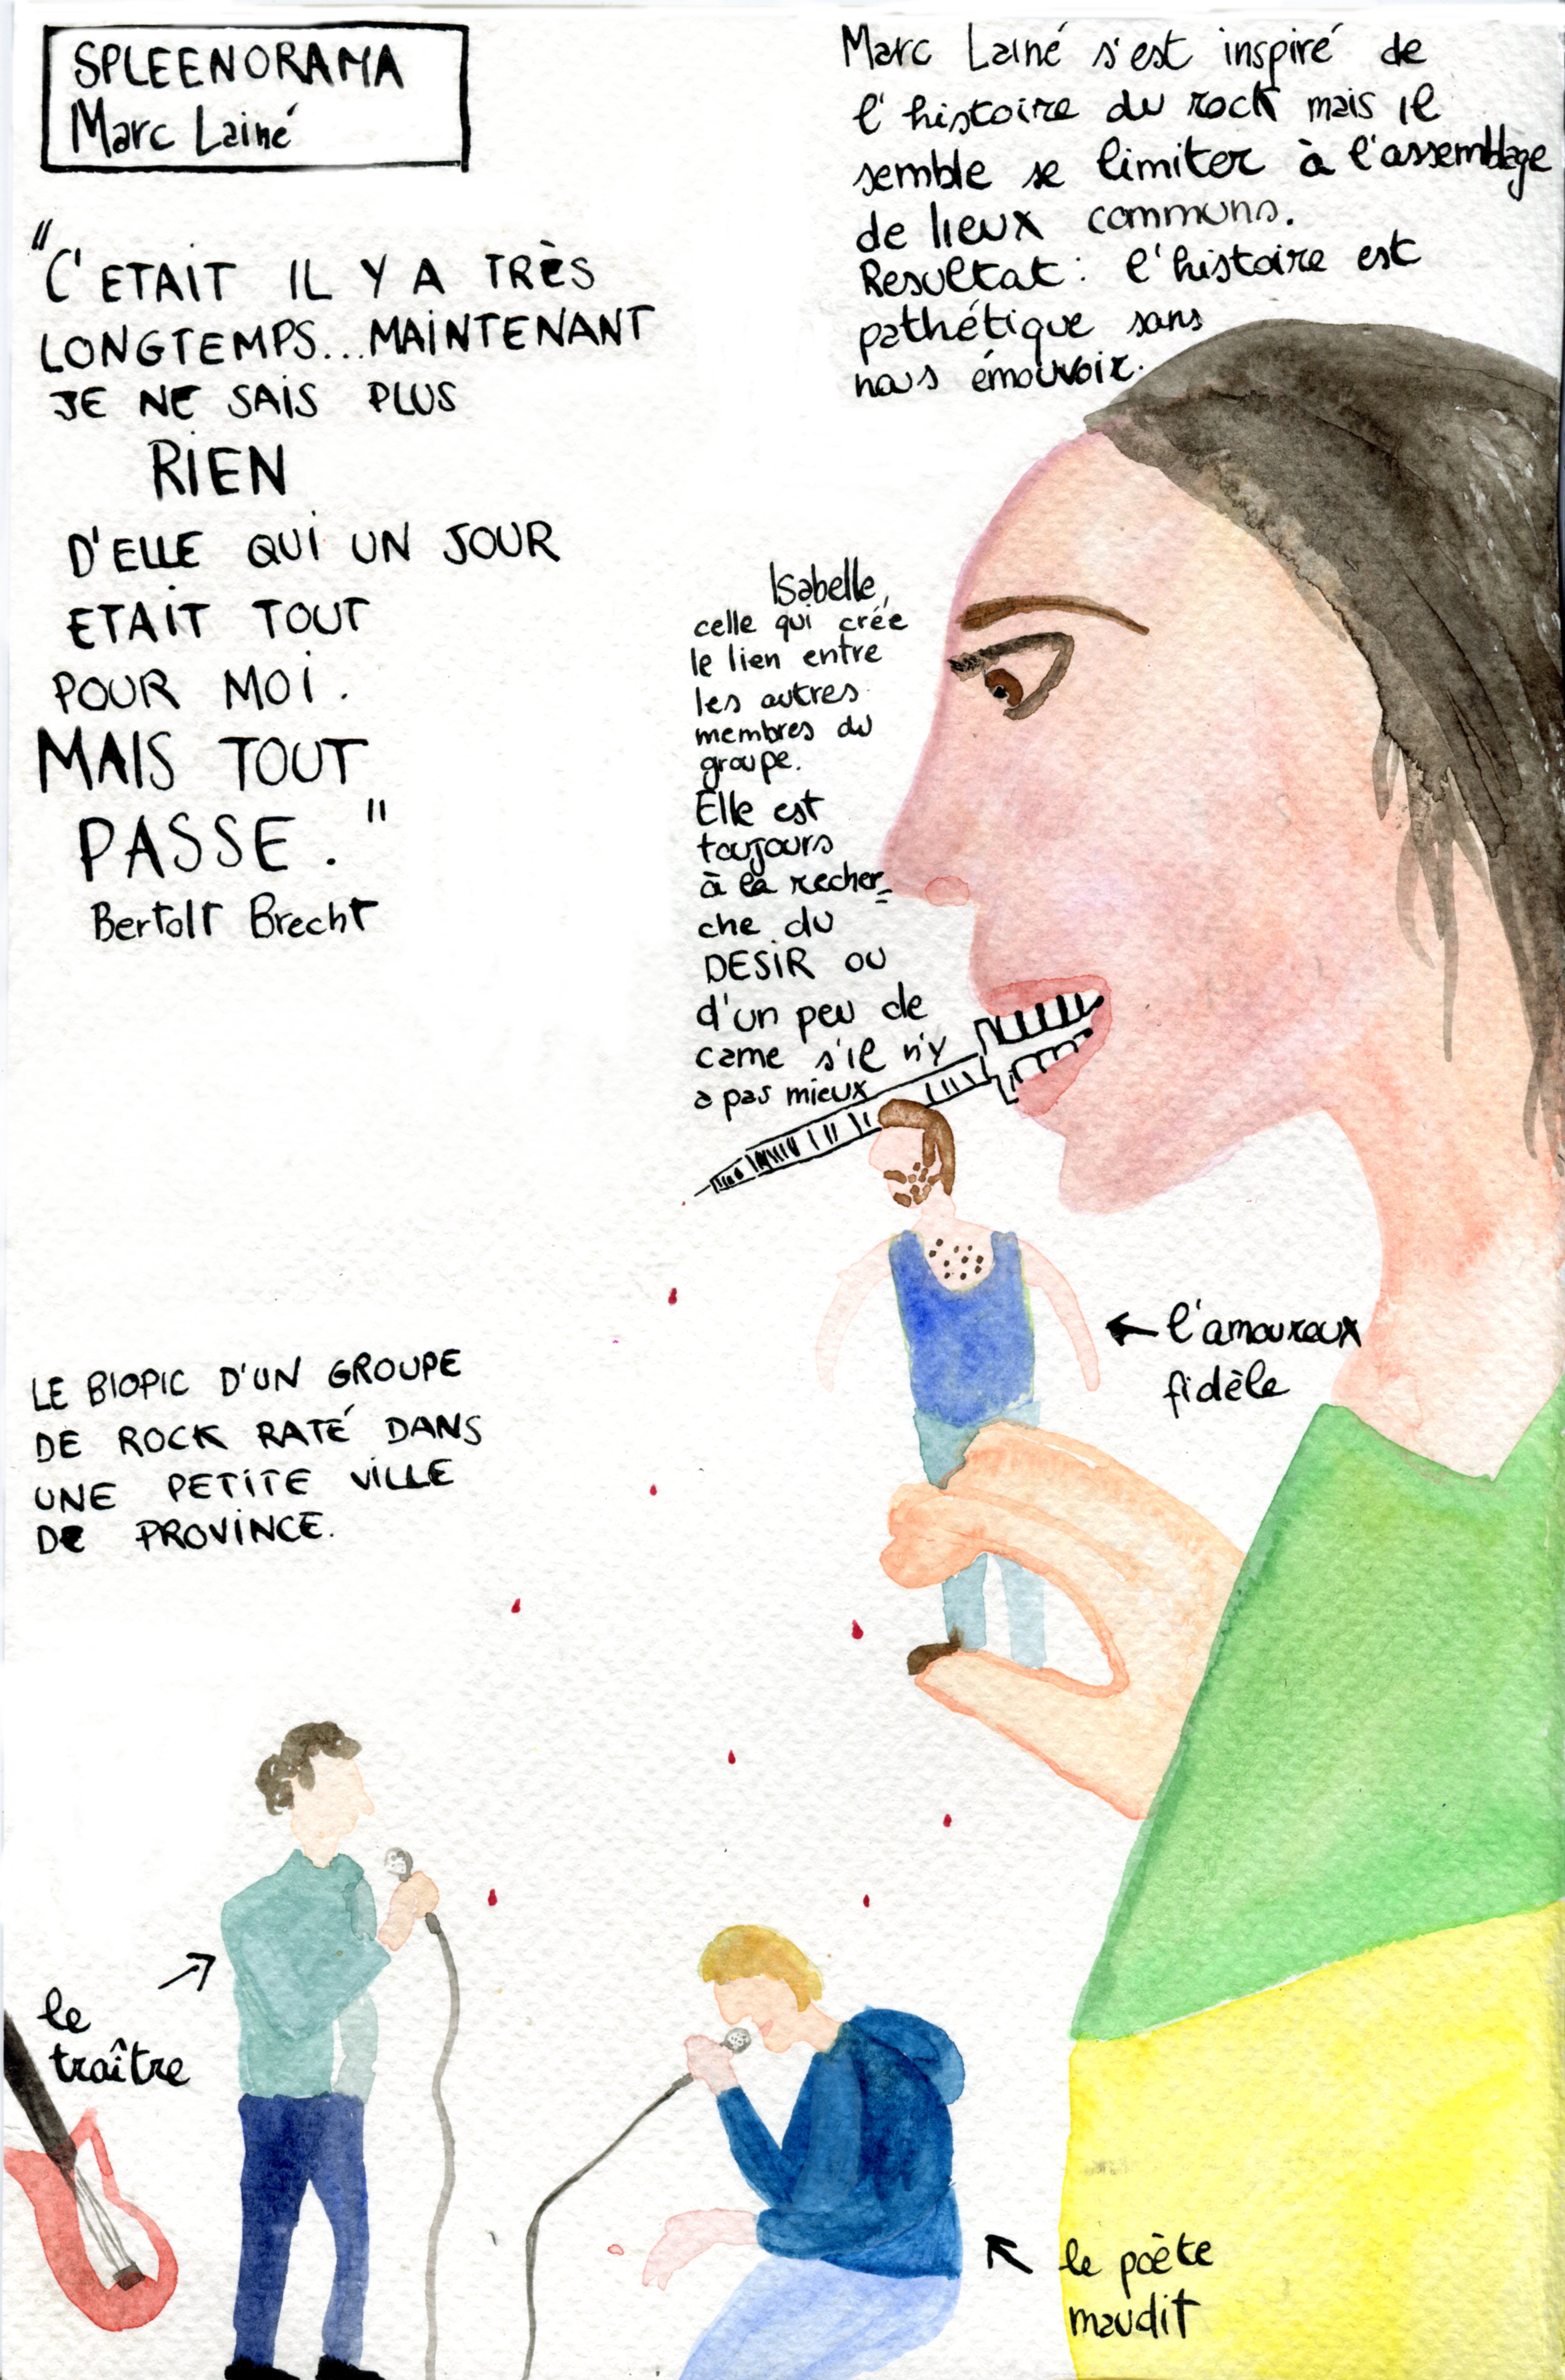 SPLEENORAMA
Marc Lainé
"C'ETAIT IL Y A TRÈS
LONGTEMPS... MAINTENANT
JE NE SAIS PLUS
RIEN
D'ELLE QUI UN JOUR
ETAIT TOUT
POUR MOI.
MAIS TOUT
PASSE."
Bertolt Brecht
Marc Lainé s'est inspiré de
l'histoire du rock mais il
semble se limiter à l'assemblage
de lieux communs.
Resultat: l'histoire est
pathétique sans
nous émouvoir.
Isabelle,
celle qui crée
le lien entre
les autres
membres du
groupe.
Elle est
toujours
à la recher-
che du
DESIR ou
d'un peu de
came s'il n'y
a pas mieux
LE BIOPIC D'UN GROUPE
DE ROCK RATÉ DANS
UNE PETITE VILLE
DE PROVINCE.
l'amoureux
fidèle
le
traître
le poète
maudit